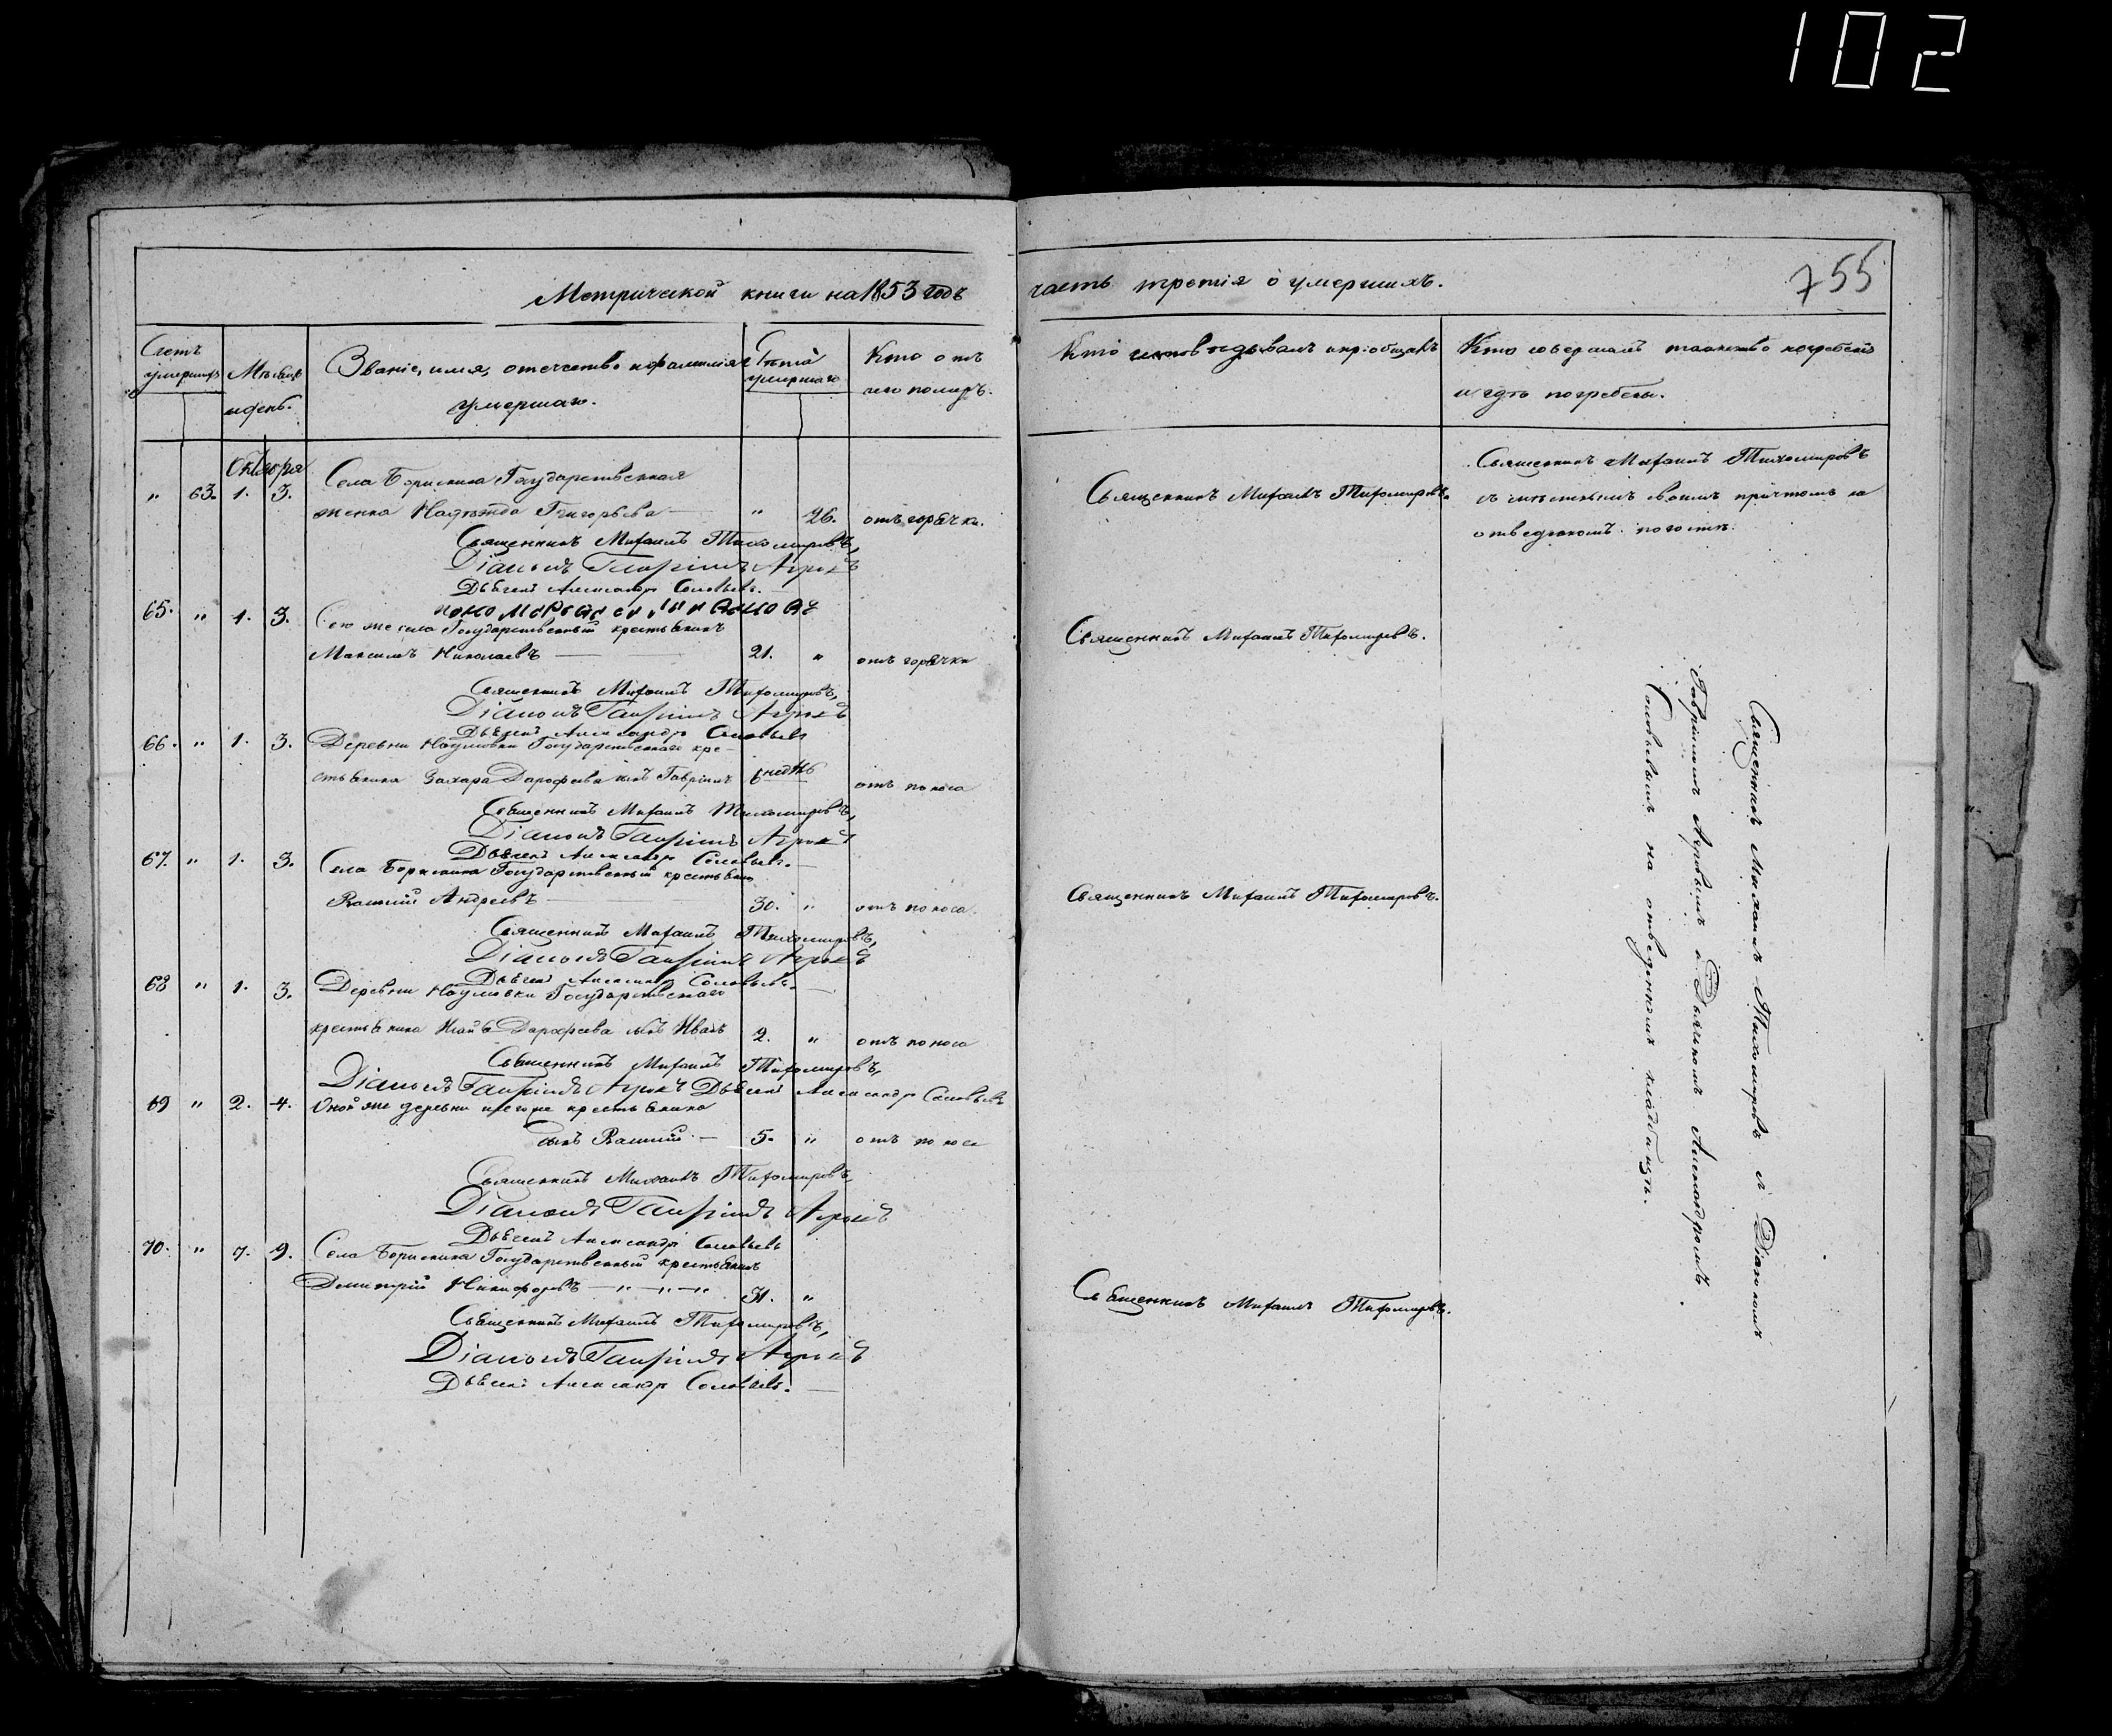 102
Метрической книги на 1853 годъ
часть третія о умершихъ.
755
Счетъ умершихъ
Мѣсяцъ и день.
Званіе, имя, отечество и фамилія умершаго.
Лѣта умершаго
Кто отъ чего померъ.
Кто исповѣдывалъ и пріобщалъ
Кто совершалъ таинство погребенія
и гдѣ погребены.
Октября
" 63. 1. 3. Села Борискина Государственная
женка Надежда Григорьева " 26. отъ горячки.
Священникъ Михаилъ Тихомировъ,
Діаконъ Гавріилъ Агровъ
Дьячекъ Александръ Соловьевъ.
Священникъ Михаилъ Тихомировъ.
Священникъ Михаилъ Тихомировъ
съ своимъ причтомъ на
отведенномъ погостѣ.
65. " 1. 3. Сего же села Государственный крестьянинъ
Максимъ Николаевъ 21. " отъ горячки
Священникъ Михаилъ Тихомировъ,
Діаконъ Гавріилъ Агровъ
Дьячекъ Александръ Соловьевъ
Священникъ Михаилъ Тихомировъ.
66. " 1. 3. Деревни Наумовки Государственнаго кре-
стьянина Захара Дорофеева сынъ Гавріилъ 6 недѣ отъ поноса
Священникъ Михаилъ Тихомировъ,
Діаконъ Гавріилъ Агровъ
Дьячекъ Александръ Соловьевъ.
67. " 1. 3. Села Борискина Государственный крестьянинъ
Андреевъ 30. " отъ поноса.
Священникъ Михаилъ Тихомировъ,
Діаконъ Гавріилъ Агровъ
Дьячекъ Александръ Соловьевъ.
Священникъ Михаилъ Тихомировъ.
68 " 1. 3. Деревни Наумовки Государственнаго
крестьянина Дорофеева сынъ Иванъ 2. " отъ поноса
Священникъ Михаилъ Тихомировъ,
Діаконъ Гавріилъ Агровъ Дьячекъ Александръ Соловьевъ
69 " 2. 4. Оной же деревни крестьянина
сынъ 5. " отъ поноса
Священникъ Михаилъ Тихомировъ,
Діаконъ Гавріилъ Агровъ
Дьячекъ Александръ Соловьевъ
70. " 7. 9. Села Борискина Государственный крестьянинъ
Димитрій Никифоровъ 31. "
Священникъ Михаилъ Тихомировъ,
Діаконъ Гавріилъ Агровъ
Дьячекъ Александръ Соловьевъ.
Священникъ Михаилъ Тихомировъ.
Священникъ Михаилъ Тихомировъ съ Діакономъ
Гавріиломъ Агровымъ и Дьячкомъ Александромъ
Соловьевымъ на отведенномъ кладбищѣ.